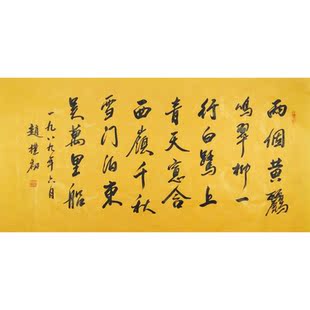 兩個黃鸝
鳴翠柳一
行白鷺上
青天窓含
西嶺千秋
雪门泊東
吳萬里船
一九八九年六月
趙樸初